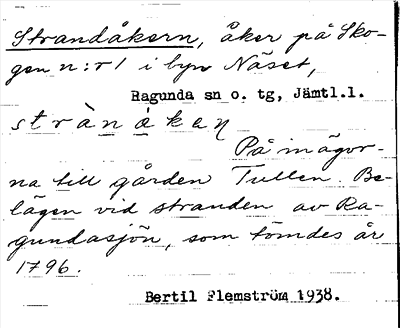 Strandåkern, åker på Sko-
gen n:r 1 i byn Näset,
Ragunda sn o. tg, Jämtl.l.
strànåkaɳ
På inägor-
na till gården Tullen. Be-
lägen vid stranden av Ra-
gundasjön, som tömdes år
1796.
Bertil Flemström 1938.